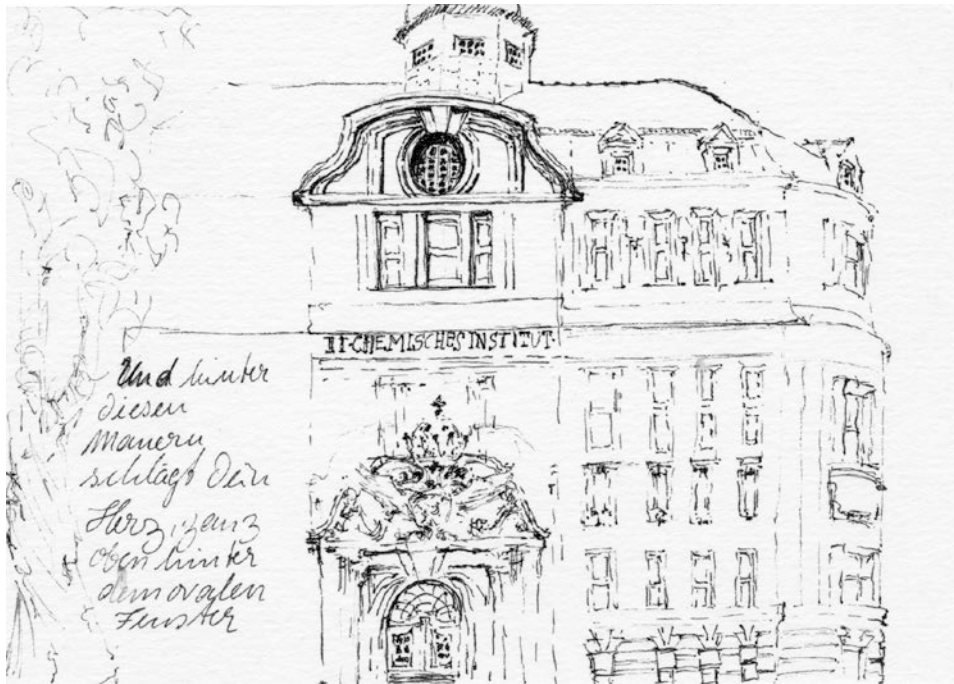 II·CHEMISCHES INSTITUT·
Und hinter
diesen
Mauern
schlägt Dein
Herz, ganz
oben hinter
dem ovalen
Fenster